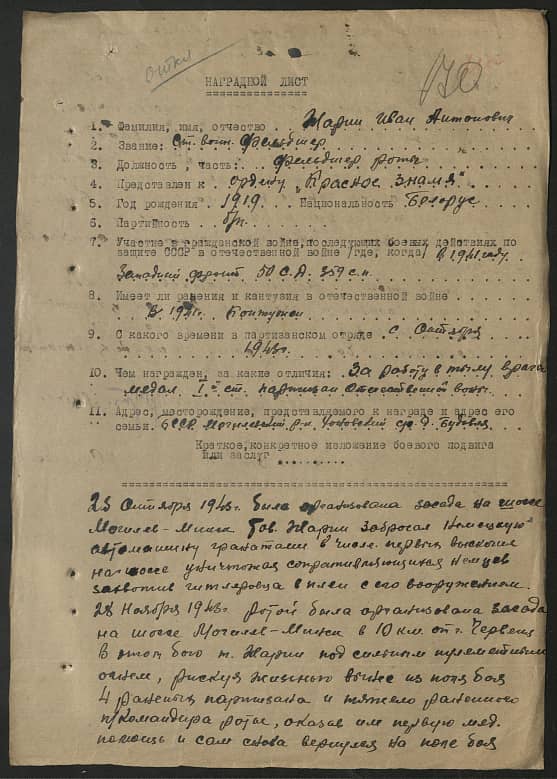 НАГРАДНОЙ ЛИСТ
1. Фамилия, имя, отчество Жарин Иван Антонович
2. Звание: Ст. воен. Фельдшер
3. Должность, часть: Фельдшер роты
4. Представлен к ордену "Красное знамя"
5. Год рождения 1919. Национальность Белорус
6. Партийность б/п
7. Участие в гражданской войне, последующих боевых действиях по
защите СССР в отечественной войне /где, когда/ в 1941 году
Западный фронт 50 С.Д. 359 с.п.
8. Имеет ли ранения и кантузия в отечественной войне
В 1941г. контужен
9. С какого времени в партизанском отряде с Сентября
1943г.
10. Чем награжден, за какие отличия: За работу в тылу врага
медал. I-й ст. партизан Отечественной войны
11. Адрес, месторождение, представляемого к награде и адрес его
семьи. БССР Могилевский р-н, с/с д.
Краткое, конкретное изложение боевого подвига
или заслуг
Сентября 1943г. была организована засада на шоссе
Могилев-Минск Тов. Жарин забросал немецкую
автомашину гранатами в числе первых выскочил
на шоссе уничтожая сопротивляющихся немцев
захватив гитлеровца в плен с его вооружением.
28 Ноября 1943г ротой была организована засада
на шоссе Могилев-Минск в 10 км от г. Червень
В этом бою т. Жарин под сильным пулеметным
огнем, рискуя жизнью вынес из поля боя
4 раненых партизана и тяжело раненного
п/командира роты, оказав им первую мед.
помощь и сам снова вернулся на поле боя